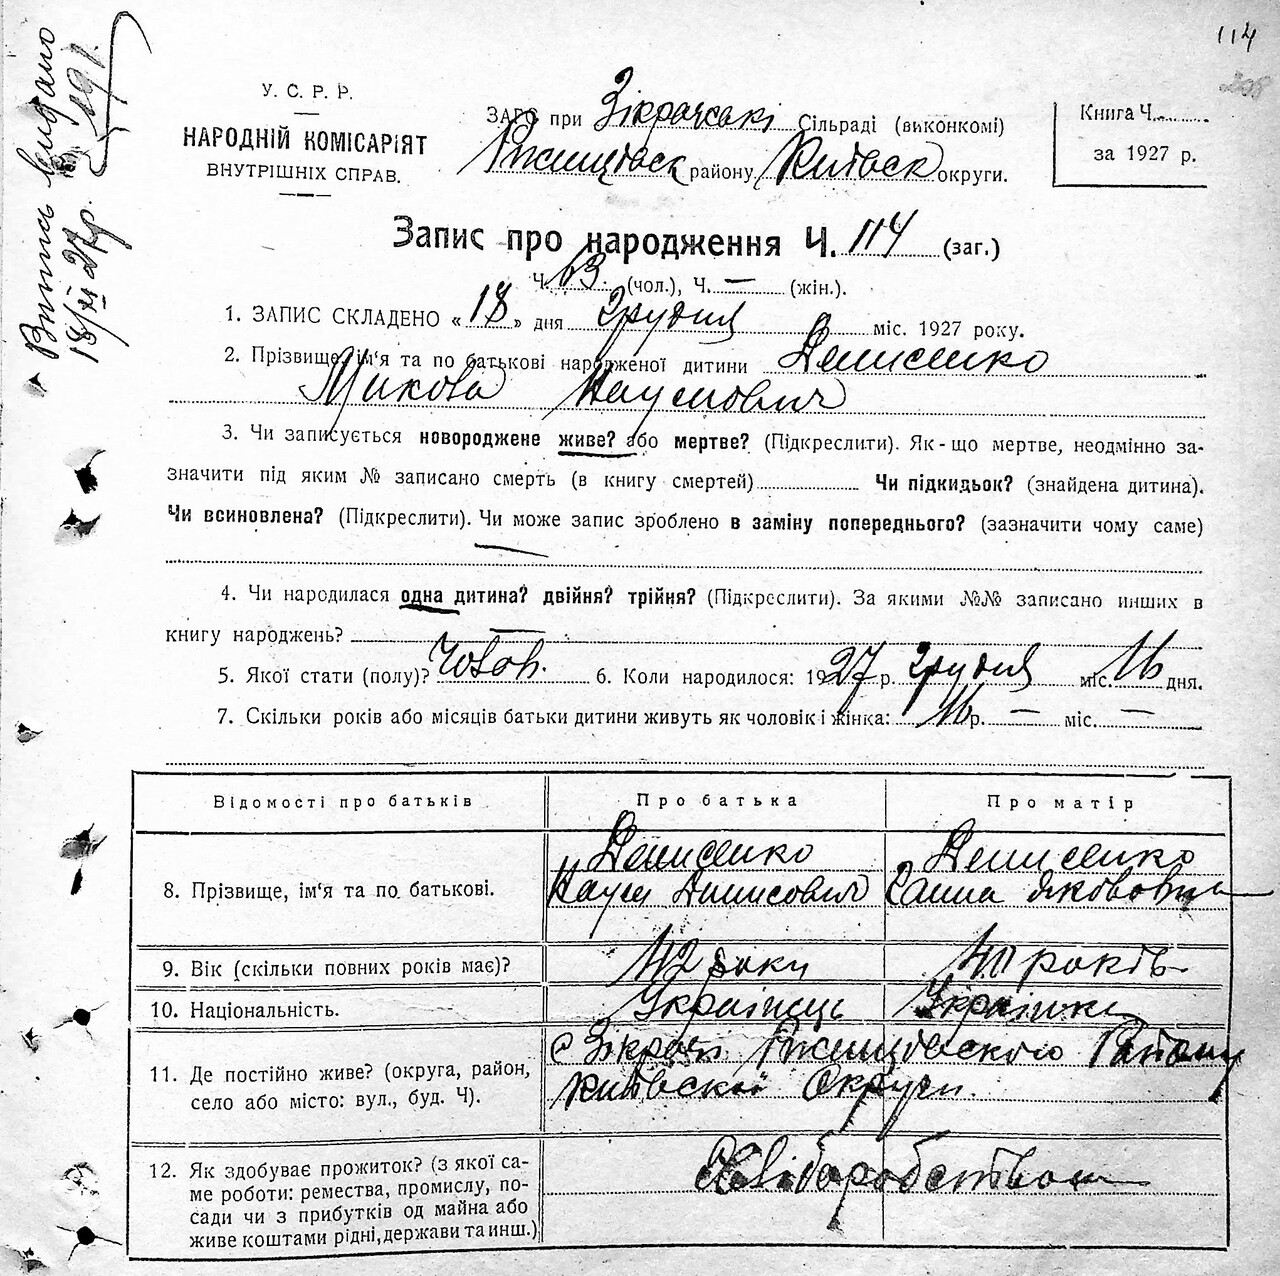 114
208
Випись видано
18/XII 27р.
191
У. С. Р. Р.
НАРОДНІЙ КОМІСАРІЯТ
ВНУТРІШНІХ СПРАВ.
ЗАГС при Зікрачські Сільраді (виконкомі)
Ржищівськ району, Київськ округи.
Книга Ч.
за 1927 р.
Запис про народження Ч. 114 (заг.)
Ч. 63. (чол.), Ч. — (жін.).
1. ЗАПИС СКЛАДЕНО «18» дня Грудня міс. 1927 року.
2. Прізвище, ім'я та по батькові народженої дитини Денисенко
Микола Наумович
3. Чи записується новороджене живе? або мертве? (Підкреслити). Як-що мертве, неодмінно за-
значити під яким № записано смерть (в книгу смертей) Чи підкидьок? (знайдена дитина).
Чи всиновлена? (Підкреслити). Чи може запис зроблено в заміну попереднього? (зазначити чому саме)
—
4. Чи народилася одна дитина? двійня? трійня? (Підкреслити). За якими №№ записано инших в
книгу народжень? —
5. Якої стати (полу)? Чолов. 6. Коли народилося: 1927 р. Грудня міс. 16 дня.
7. Скільки років або місяців батьки дитини живуть як чоловік і жінка: 16 р. — міс. —
Відомості про батьків Про батька Про матір
8. Прізвище, ім'я та по батькові. Денисенко Наум Денисович Денисенко Ганна Якововна
9. Вік (скільки повних років має)? 42 роки 40 років
10. Національність. Українець Українка
11. Де постійно живе? (округа, район, село або місто: вул., буд. Ч). с Зікрачі Ржищівского Району
Київскої Округи.
12. Як здобуває прожиток? (з якої са-
ме роботи: ремества, промислу, по-
сади чи з прибутків од майна або
живе коштами рідні, держави та инш.) Хліборобством